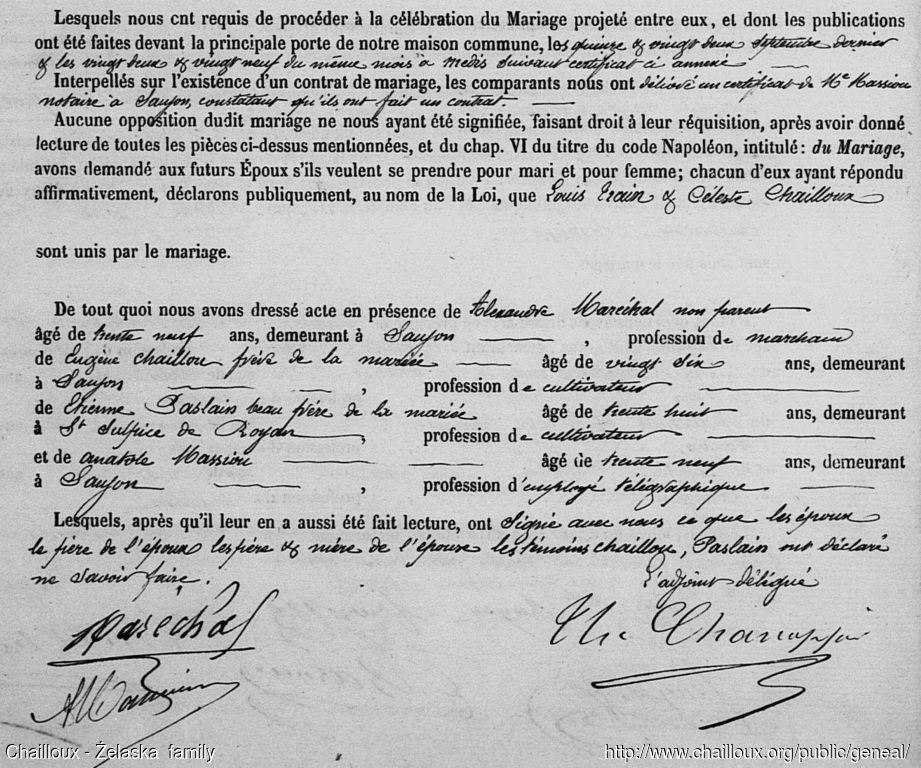 Lesquels nous ont requis de procéder à la célébration du Mariage projeté entre eux, et dont les publications
ont été faites devant la principale porte de notre maison commune, les quinze & vingt deux Septembre dernier
& les vingt deux & vingt neuf du même mois à Médis suivant certificat ci annexé
Interpellés sur l'existence d'un contrat de mariage, les comparants nous ont délivré un certificat de Me Massiou
notaire à Saujon, constatant qu'ils ont fait un contrat.
Aucune opposition dudit mariage ne nous ayant été signifiée, faisant droit à leur réquisition, après avoir donné
lecture de toutes les pièces ci-dessus mentionnées, et du chap. VI du titre du code Napoléon, intitulé : du Mariage,
avons demandé aux futurs Époux s'ils veulent se prendre pour mari et pour femme; chacun d'eux ayant répondu
affirmativement, déclarons publiquement, au nom de la Loi, que Louis & Céleste Chailloux
sont unis par le mariage.
De tout quoi nous avons dressé acte en présence de Alexandre Maréchal non parent
âgé de trente neuf ans, demeurant à Saujon , profession de marchand
de Eugène Chaillou frère de la mariée âgé de vingt six ans, demeurant
à Saujon , profession de cultivateur
de Etienne Paslain beau frère de la mariée âgé de trente huit ans, demeurant
à St Sulpice de Royan , profession de cultivateur
et de anatole Massiou âgé de trente neuf ans, demeurant
à Saujon , profession d'employé télégraphique
Lesquels, après qu'il leur en a aussi été fait lecture, ont Signé avec nous ce que les époux
le père de l'époux les père & mère de l'épouse les témoins chaillou, Paslain ont déclaré
ne Savoir faire.
L'adjoint délégué
Maréchal
Chailloux - Żelaska family
http://www.chailloux.org/public/geneal/